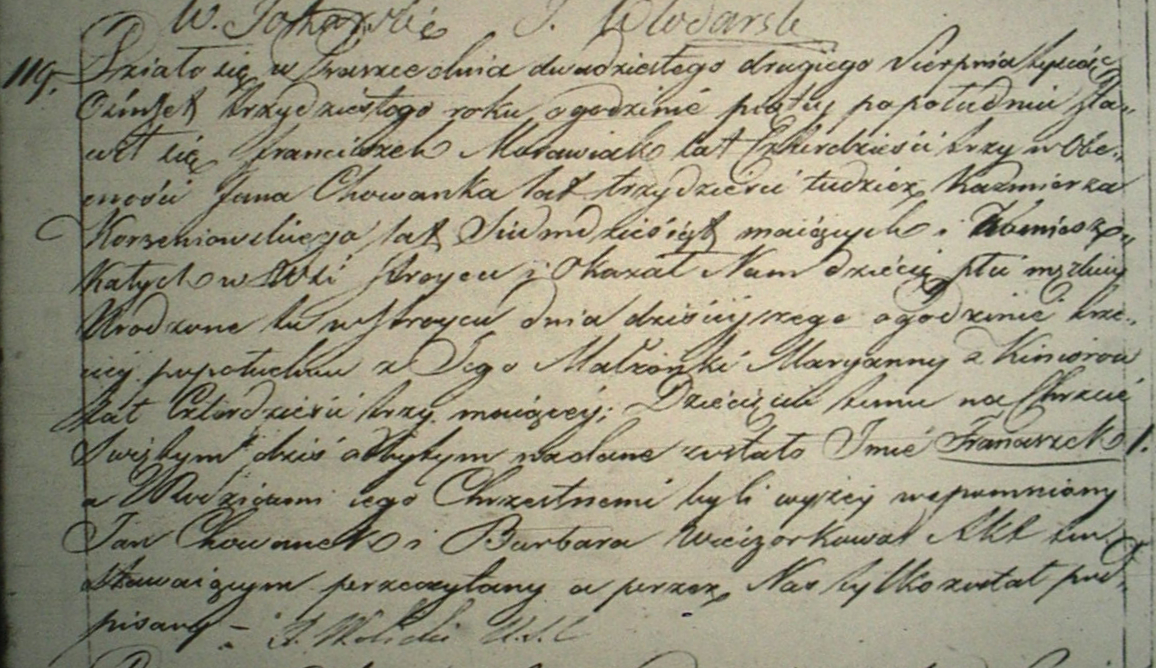 W. J. Włodarski
119. Działo się w dnia dwudziestego drugiego Sierpnia tysiąc
Ośmset trzydziestego roku, o godzinie piąty popołudniu sta-
wił się Franciszek Morawiak lat Czterdzieści trzy w Obe-
cności Jana Chowanka lat trzydzieści tudzież Kazmierza
Korzeniowskiego lat Siedmdziesiąt maiących i Zamiesz-
kałych w Wsi Stroycu i Okazał Nam dziecię płci męzkiey
Urodzone tu w Stroycu dnia dzisieyszego o godzinie trze-
ciey popołudniu z Jego Małżonki Maryanny z
Lat Czterdzieści trzy maiącey; Dziecięciu temu na Chrzcie
Swiętym dziś odbytym nadane zostało Imie Franciszek 1.
a Rodzicami iego Chrzestnemi byli wyżey wspomniony
Jan Chowanek i Barbara Wieczorkowa Akt ten
Stawaiącym przeczytany a przez Nas tylko został pod-
pisany –